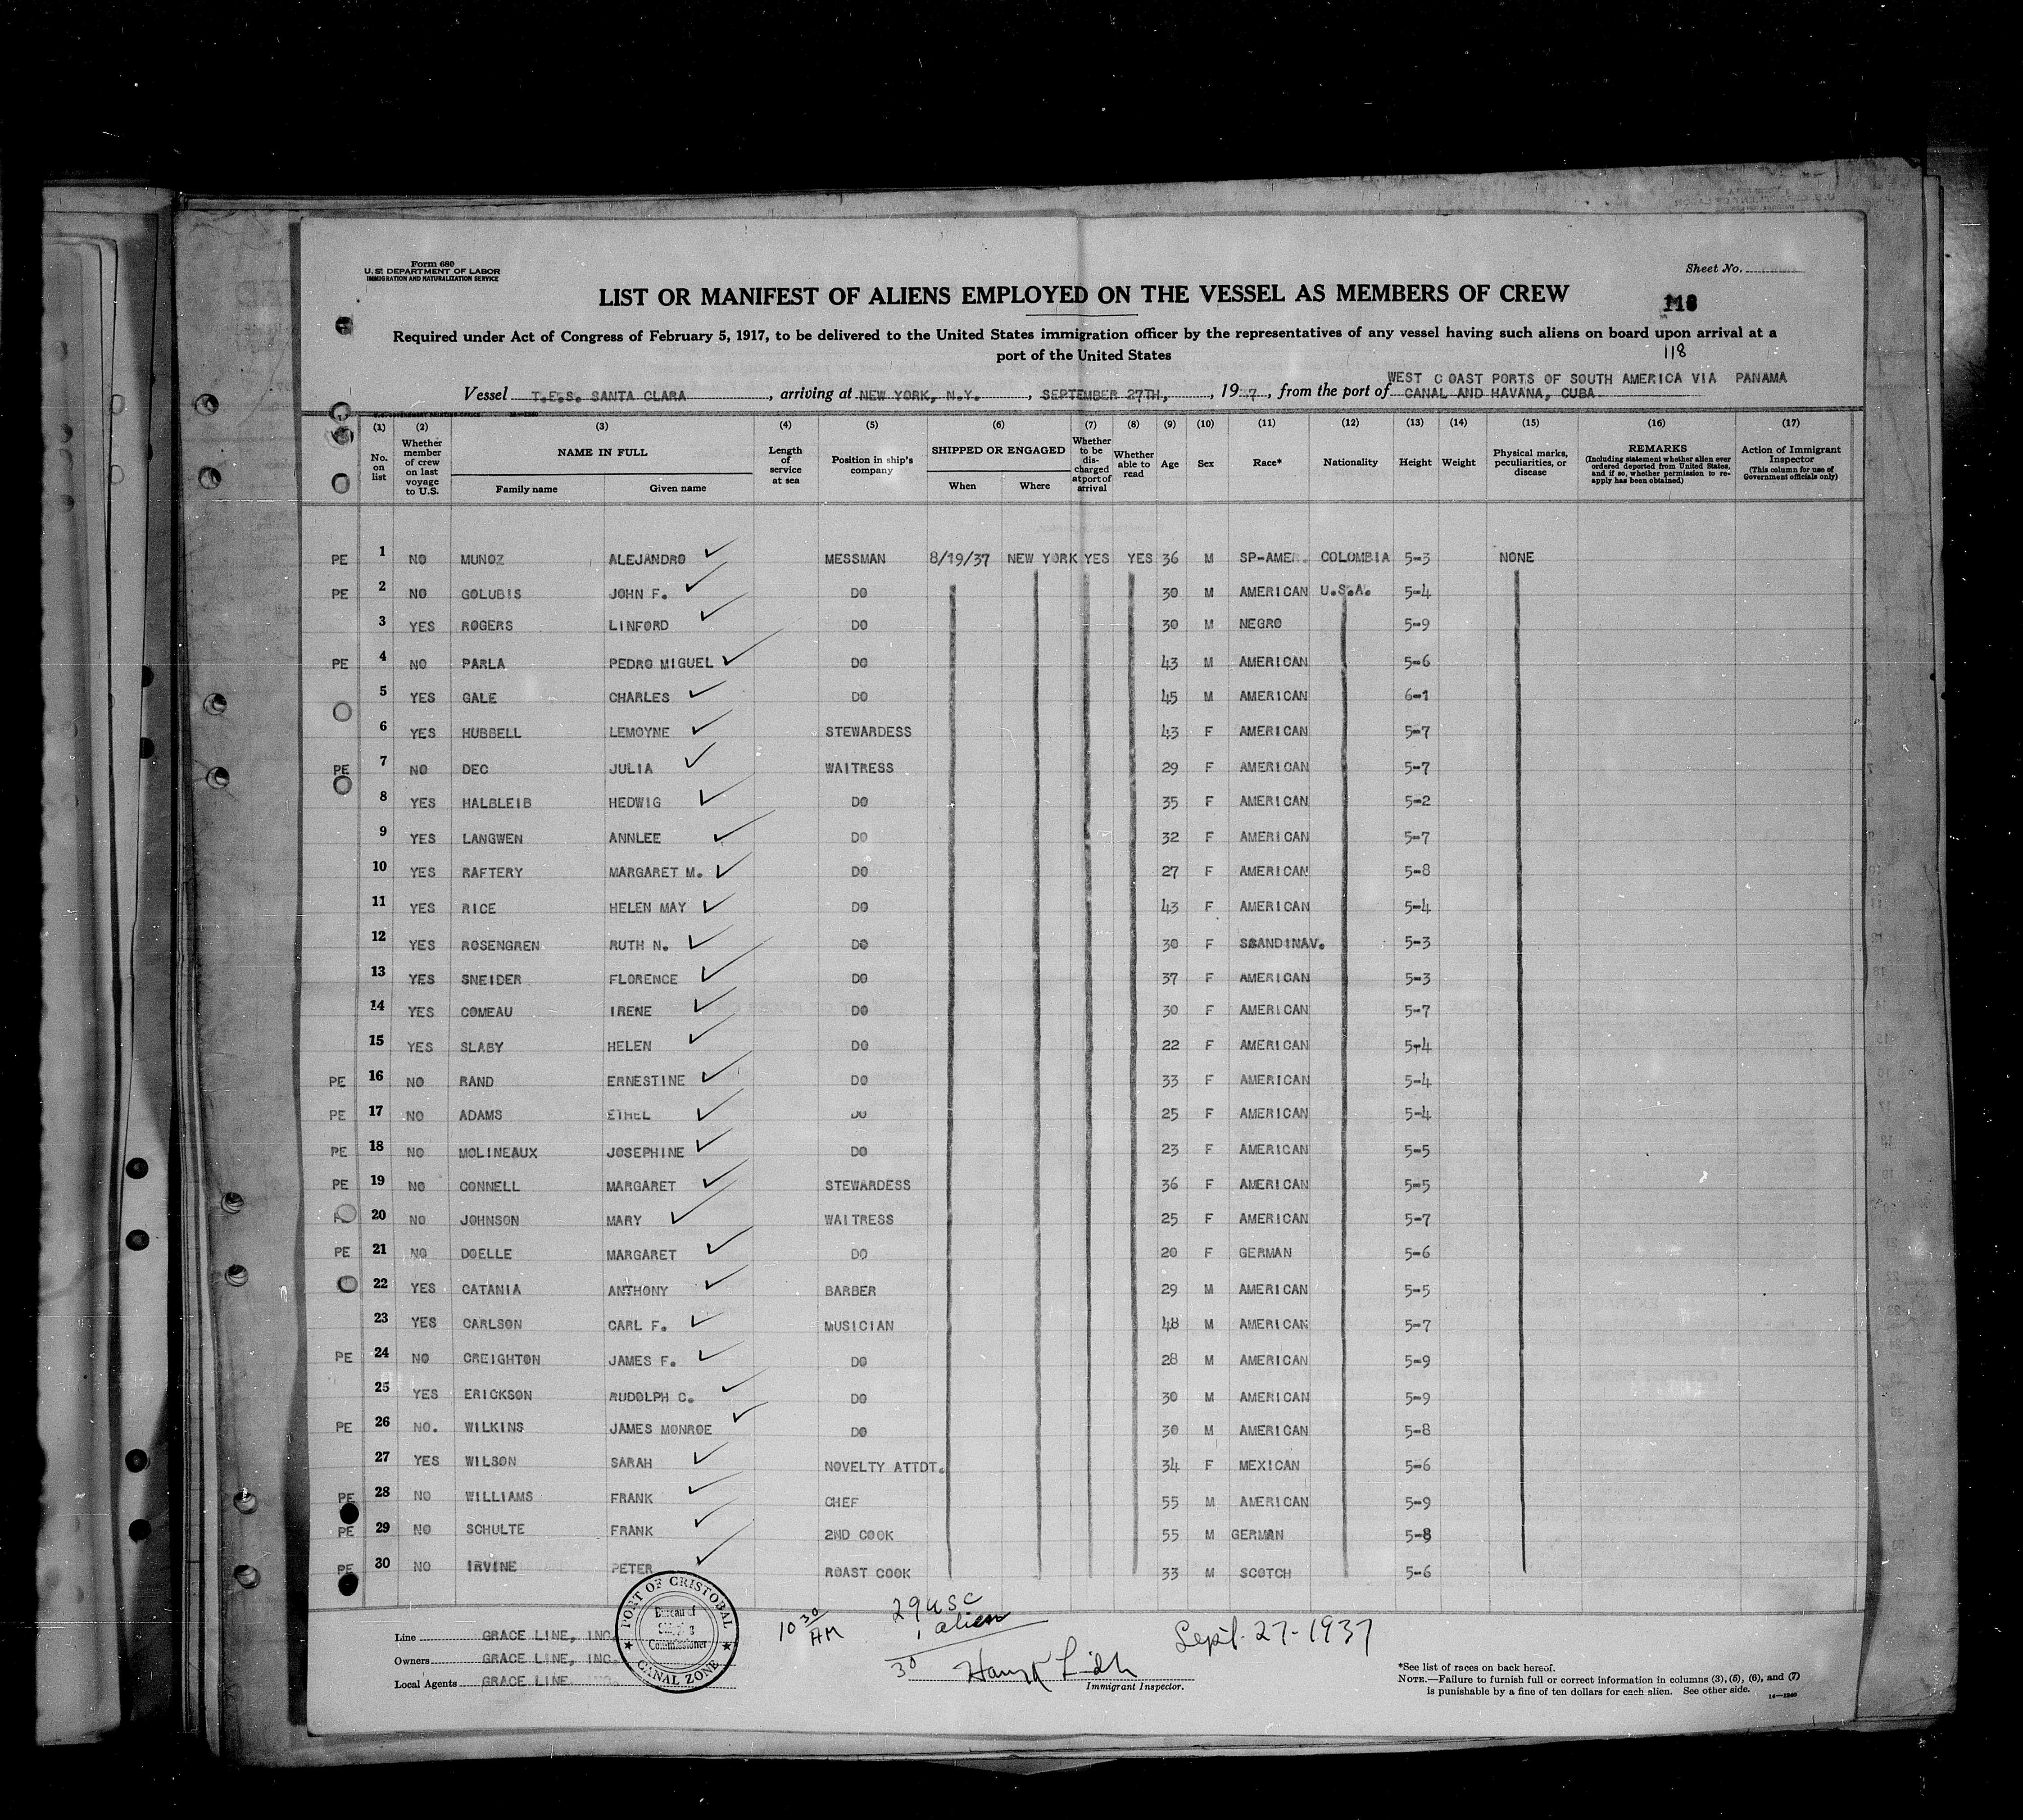 Form 680
U. S. DEPARTMENT OF LABOR
IMMIGRATION AND NATURALIZATION SERVICE
Sheet No.
LIST OR MANIFEST OF ALIENS EMPLOYED ON THE VESSEL AS MEMBERS OF CREW
118
Required under Act of Congress of February 5, 1917, to be delivered to the United States immigration officer by the representatives of any vessel having such aliens on board upon arrival at a
port of the United States
118
WEST COAST PORTS OF SOUTH AMERICA VIA PANAMA
Vessel T.E.S. SANTA CLARA, arriving at NEW YORK, N.Y., SEPTEMBER 27TH, 1937, from the port of CANAL AND HAVANA, CUBA
(1) (2) (3) (4) (5) (6) (7) (8) (9) (10) (11) (12) (13) (14) (15) (16) (17)
No. on list
Whether member of crew on last voyage to U.S.
NAME IN FULL
Family name
Given name
Length of service at sea
Position in ship's company
SHIPPED OR ENGAGED
When
Where
Whether to be discharged at port of arrival
Whether able to read
Age
Sex
Race*
Nationality
Height
Weight
Physical marks, peculiarities, or disease
REMARKS
(Including statement whether alien ever ordered deported from United States, and if so, whether permission to reapply has been obtained)
Action of Immigrant Inspector
(This column for use of Government officials only)
PE 1 NO MUNOZ ALEJANDRO MESSMAN 8/19/37 NEW YORK YES YES 36 M SP-AMER. COLOMBIA 5-3 NONE
PE 2 NO GOLUBIS JOHN F. DO 30 M AMERICAN U.S.A. 5-4
3 YES ROGERS LINFORD DO 30 M NEGRO 5-9
PE 4 NO PARLA PEDRO MIGUEL DO 43 M AMERICAN 5-6
5 YES GALE CHARLES DO 45 M AMERICAN 6-1
6 YES HUBBELL LEMOYNE STEWARDESS 43 F AMERICAN 5-7
PE 7 NO DEC JULIA WAITRESS 29 F AMERICAN 5-7
8 YES HALBLEIB HEDWIG DO 35 F AMERICAN 5-2
9 YES LANGWEN ANNLEE DO 32 F AMERICAN 5-7
10 YES RAFTERY MARGARET M. DO 27 F AMERICAN 5-8
11 YES RICE HELEN MAY DO 43 F AMERICAN 5-4
12 YES ROSENGREN RUTH N. DO 30 F SCANDINAV. 5-3
13 YES SNEIDER FLORENCE DO 37 F AMERICAN 5-3
14 YES COMEAU IRENE DO 30 F AMERICAN 5-7
15 YES SLABY HELEN DO 22 F AMERICAN 5-4
PE 16 NO RAND ERNESTINE DO 33 F AMERICAN 5-4
PE 17 NO ADAMS ETHEL DO 25 F AMERICAN 5-4
PE 18 NO MOLINEAUX JOSEPHINE DO 23 F AMERICAN 5-5
PE 19 NO CONNELL MARGARET STEWARDESS 36 F AMERICAN 5-5
20 NO JOHNSON MARY WAITRESS 25 F AMERICAN 5-7
PE 21 NO DOELLE MARGARET DO 20 F GERMAN 5-6
22 YES CATANIA ANTHONY BARBER 29 M AMERICAN 5-5
23 YES CARLSON CARL F. MUSICIAN 48 M AMERICAN 5-7
PE 24 NO CREIGHTON JAMES F. DO 28 M AMERICAN 5-9
25 YES ERICKSON RUDOLPH C. DO 30 M AMERICAN 5-9
PE 26 NO. WILKINS JAMES MONROE DO 30 M AMERICAN 5-8
27 YES WILSON SARAH NOVELTY ATTDT. 34 F MEXICAN 5-6
PE 28 NO WILLIAMS FRANK CHEF 55 M AMERICAN 5-9
PE 29 NO SCHULTE FRANK 2ND COOK 55 M GERMAN 5-8
PE 30 NO IRVINE PETER ROAST COOK 33 M SCOTCH 5-6
PORT OF CRISTOBAL
Bureau of
Shipping
Commissioner
CANAL ZONE
10 30/AM
29 USC
1 alien
30
Sept. 27-1937
Line GRACE LINE, INC.
Owners GRACE LINE, INC.
Local Agents GRACE LINE, INC.
Immigrant Inspector.
*See list of races on back hereof.
NOTE.—Failure to furnish full or correct information in columns (3), (5), (6), and (7)
is punishable by a fine of ten dollars for each alien. See other side.
14—1240